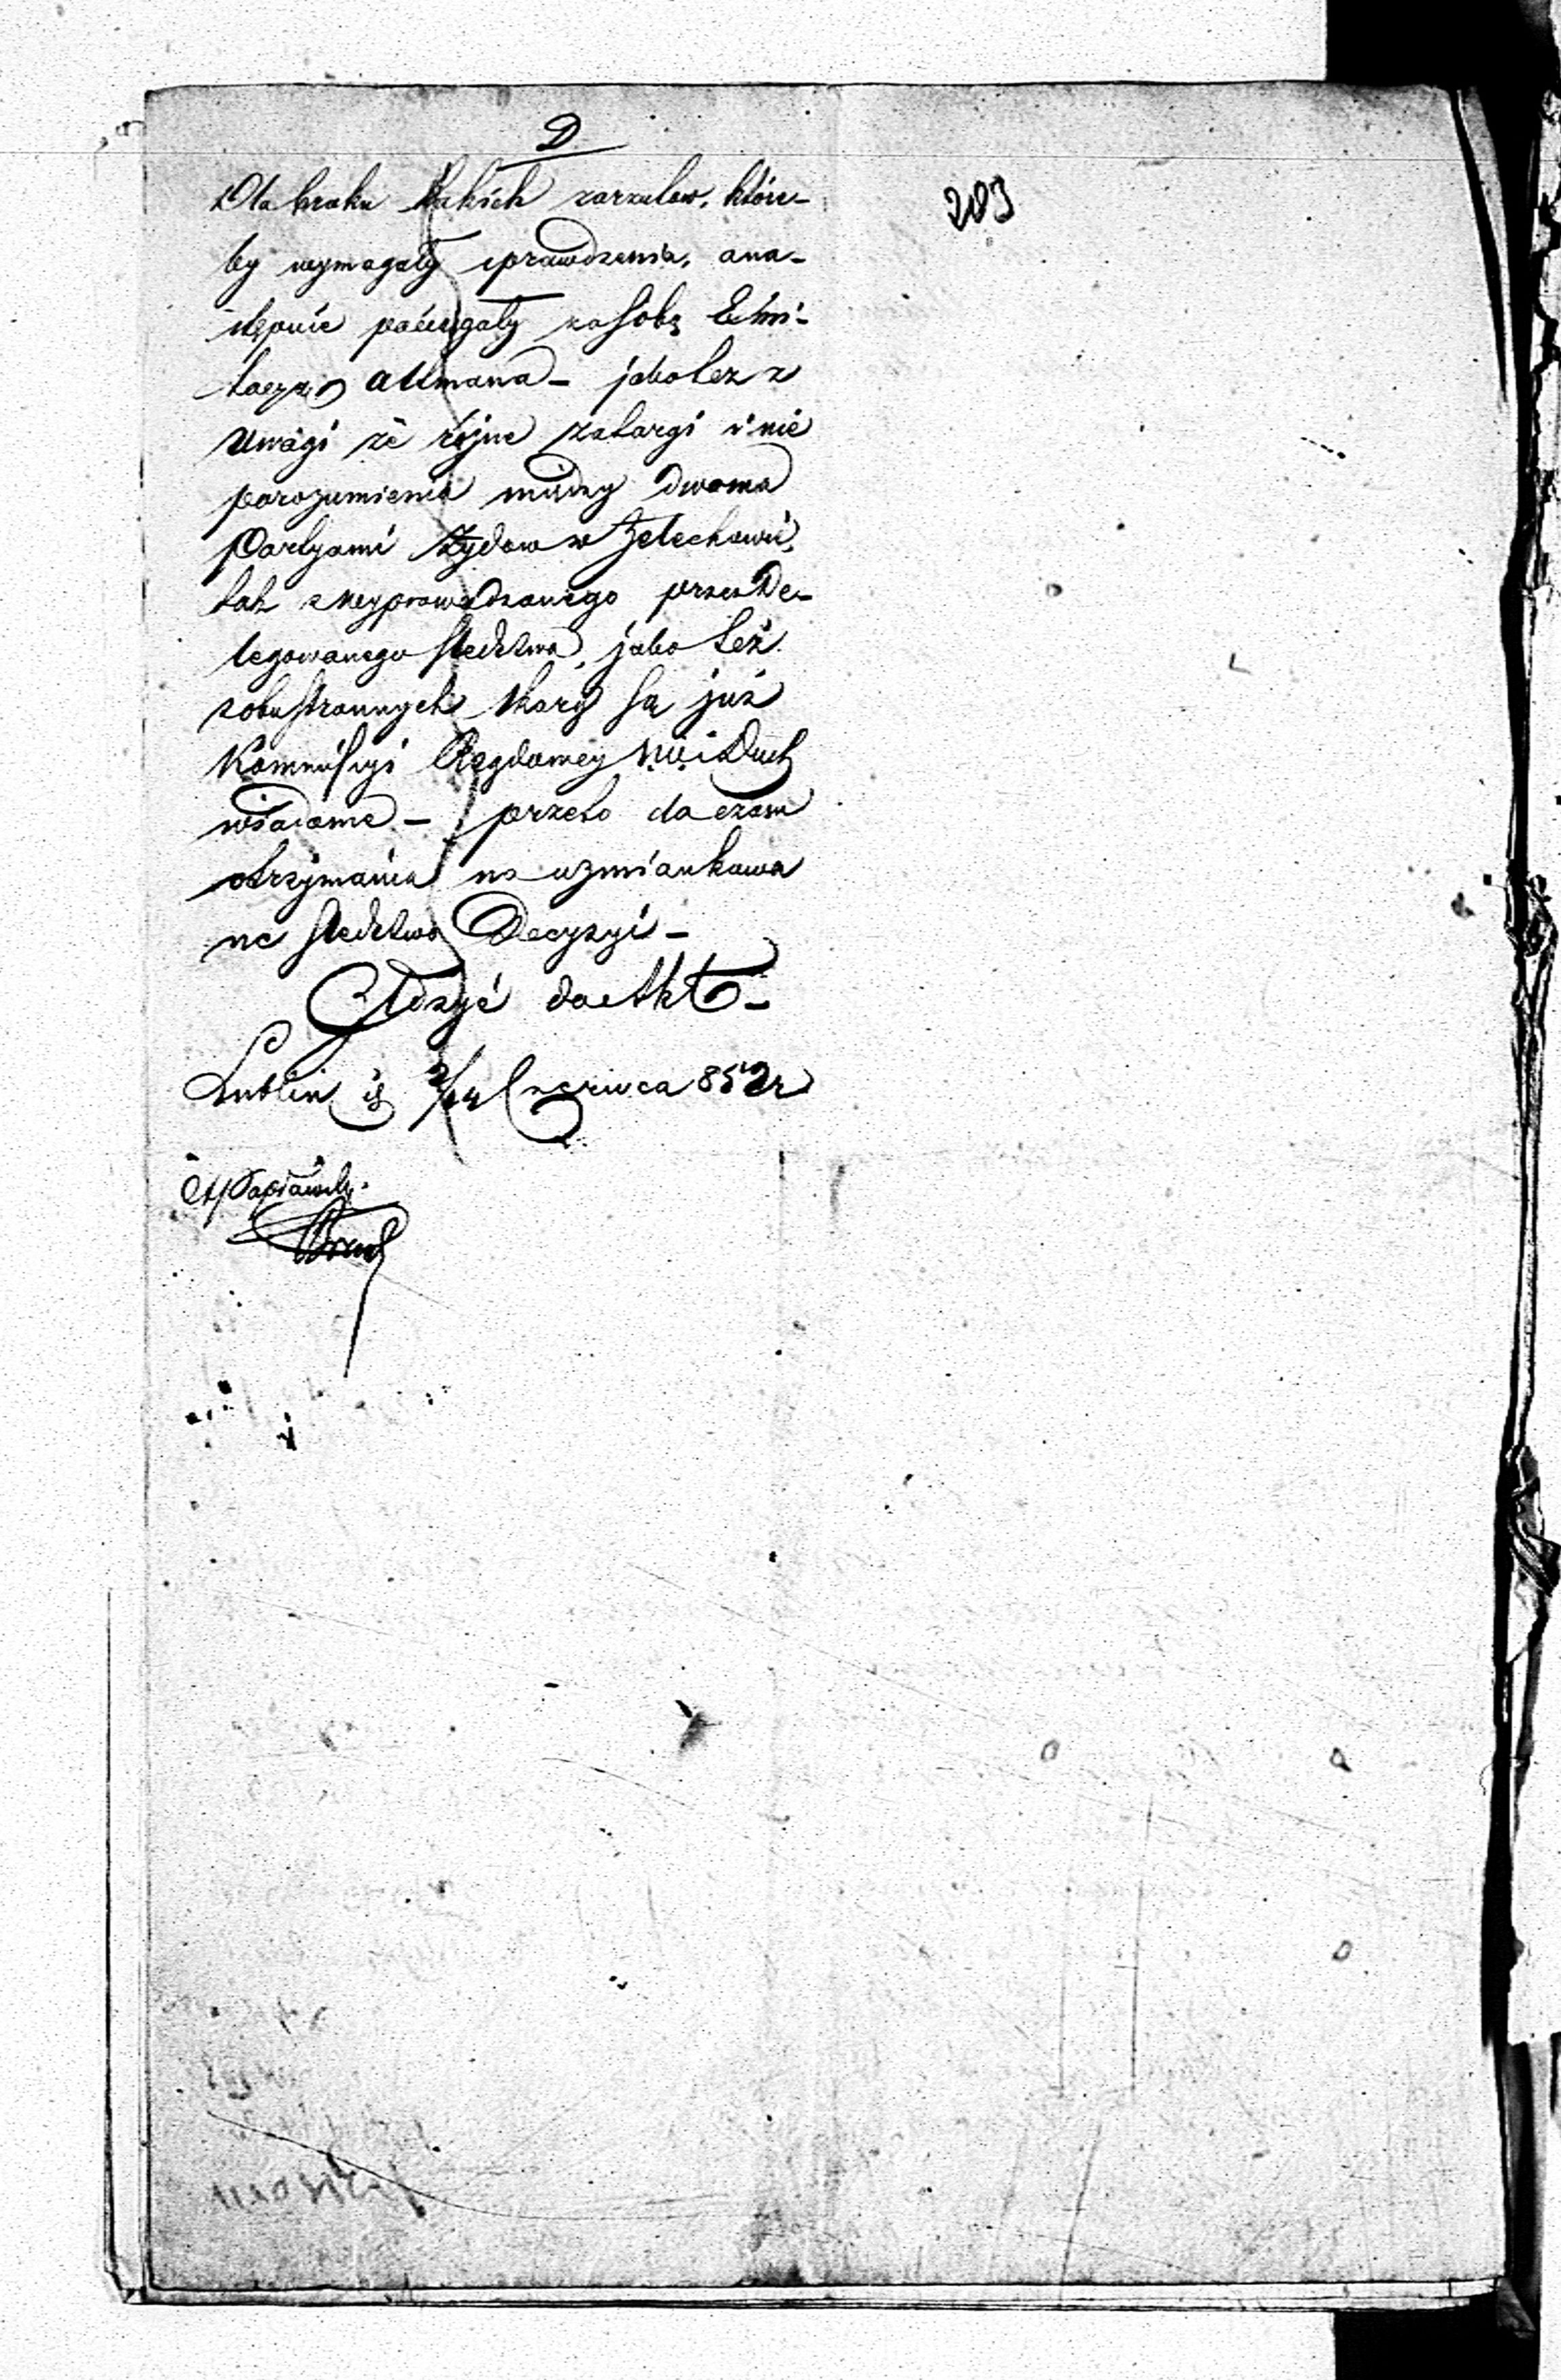 D
203
Dla braku takich zarzutow, które-
by wymagały sprawdzenia, ana-
stępnie pociągały zasobą Exmi-
tacyą Altmana - jako też z
Uwagi że różne zatargi i nie
porozumienia między dwoma
Partyami Żydow w Żelechowie,
tak z wyprowadzonego przez De-
legowanego śledztwa, jako też
zobustronnych skarg są już
Kommissyi Rządowey S. W. i Duch
wiadome - przeto do czasu
otrzymania na wzmiankowa
ne śledztwo Decyzyi -
Złożyć do Akt -
Lublin d 2/14 Czerwca 852 r